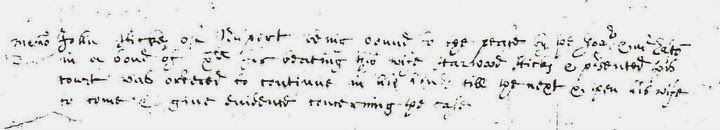 memo John Hickes of Nuport being bound to the peace by the
in a bond of xxll for beating his wife Harwood Hickes & presented this
Court was ordered to continue in his bond till the next & then his wife
to come & give evidence concerning the case